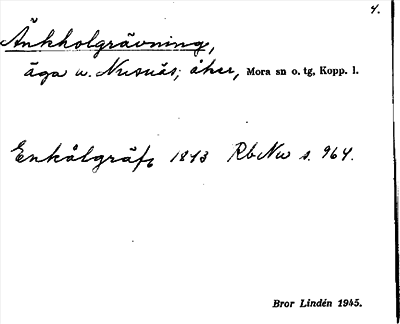 4.
Änkholgrävning,
äga u. Nusnäs; åker, Mora sn o. tg, Kopp. l.
Enkålgräfs 1843 RbNu s. 964.
Bror Lindén 1945.